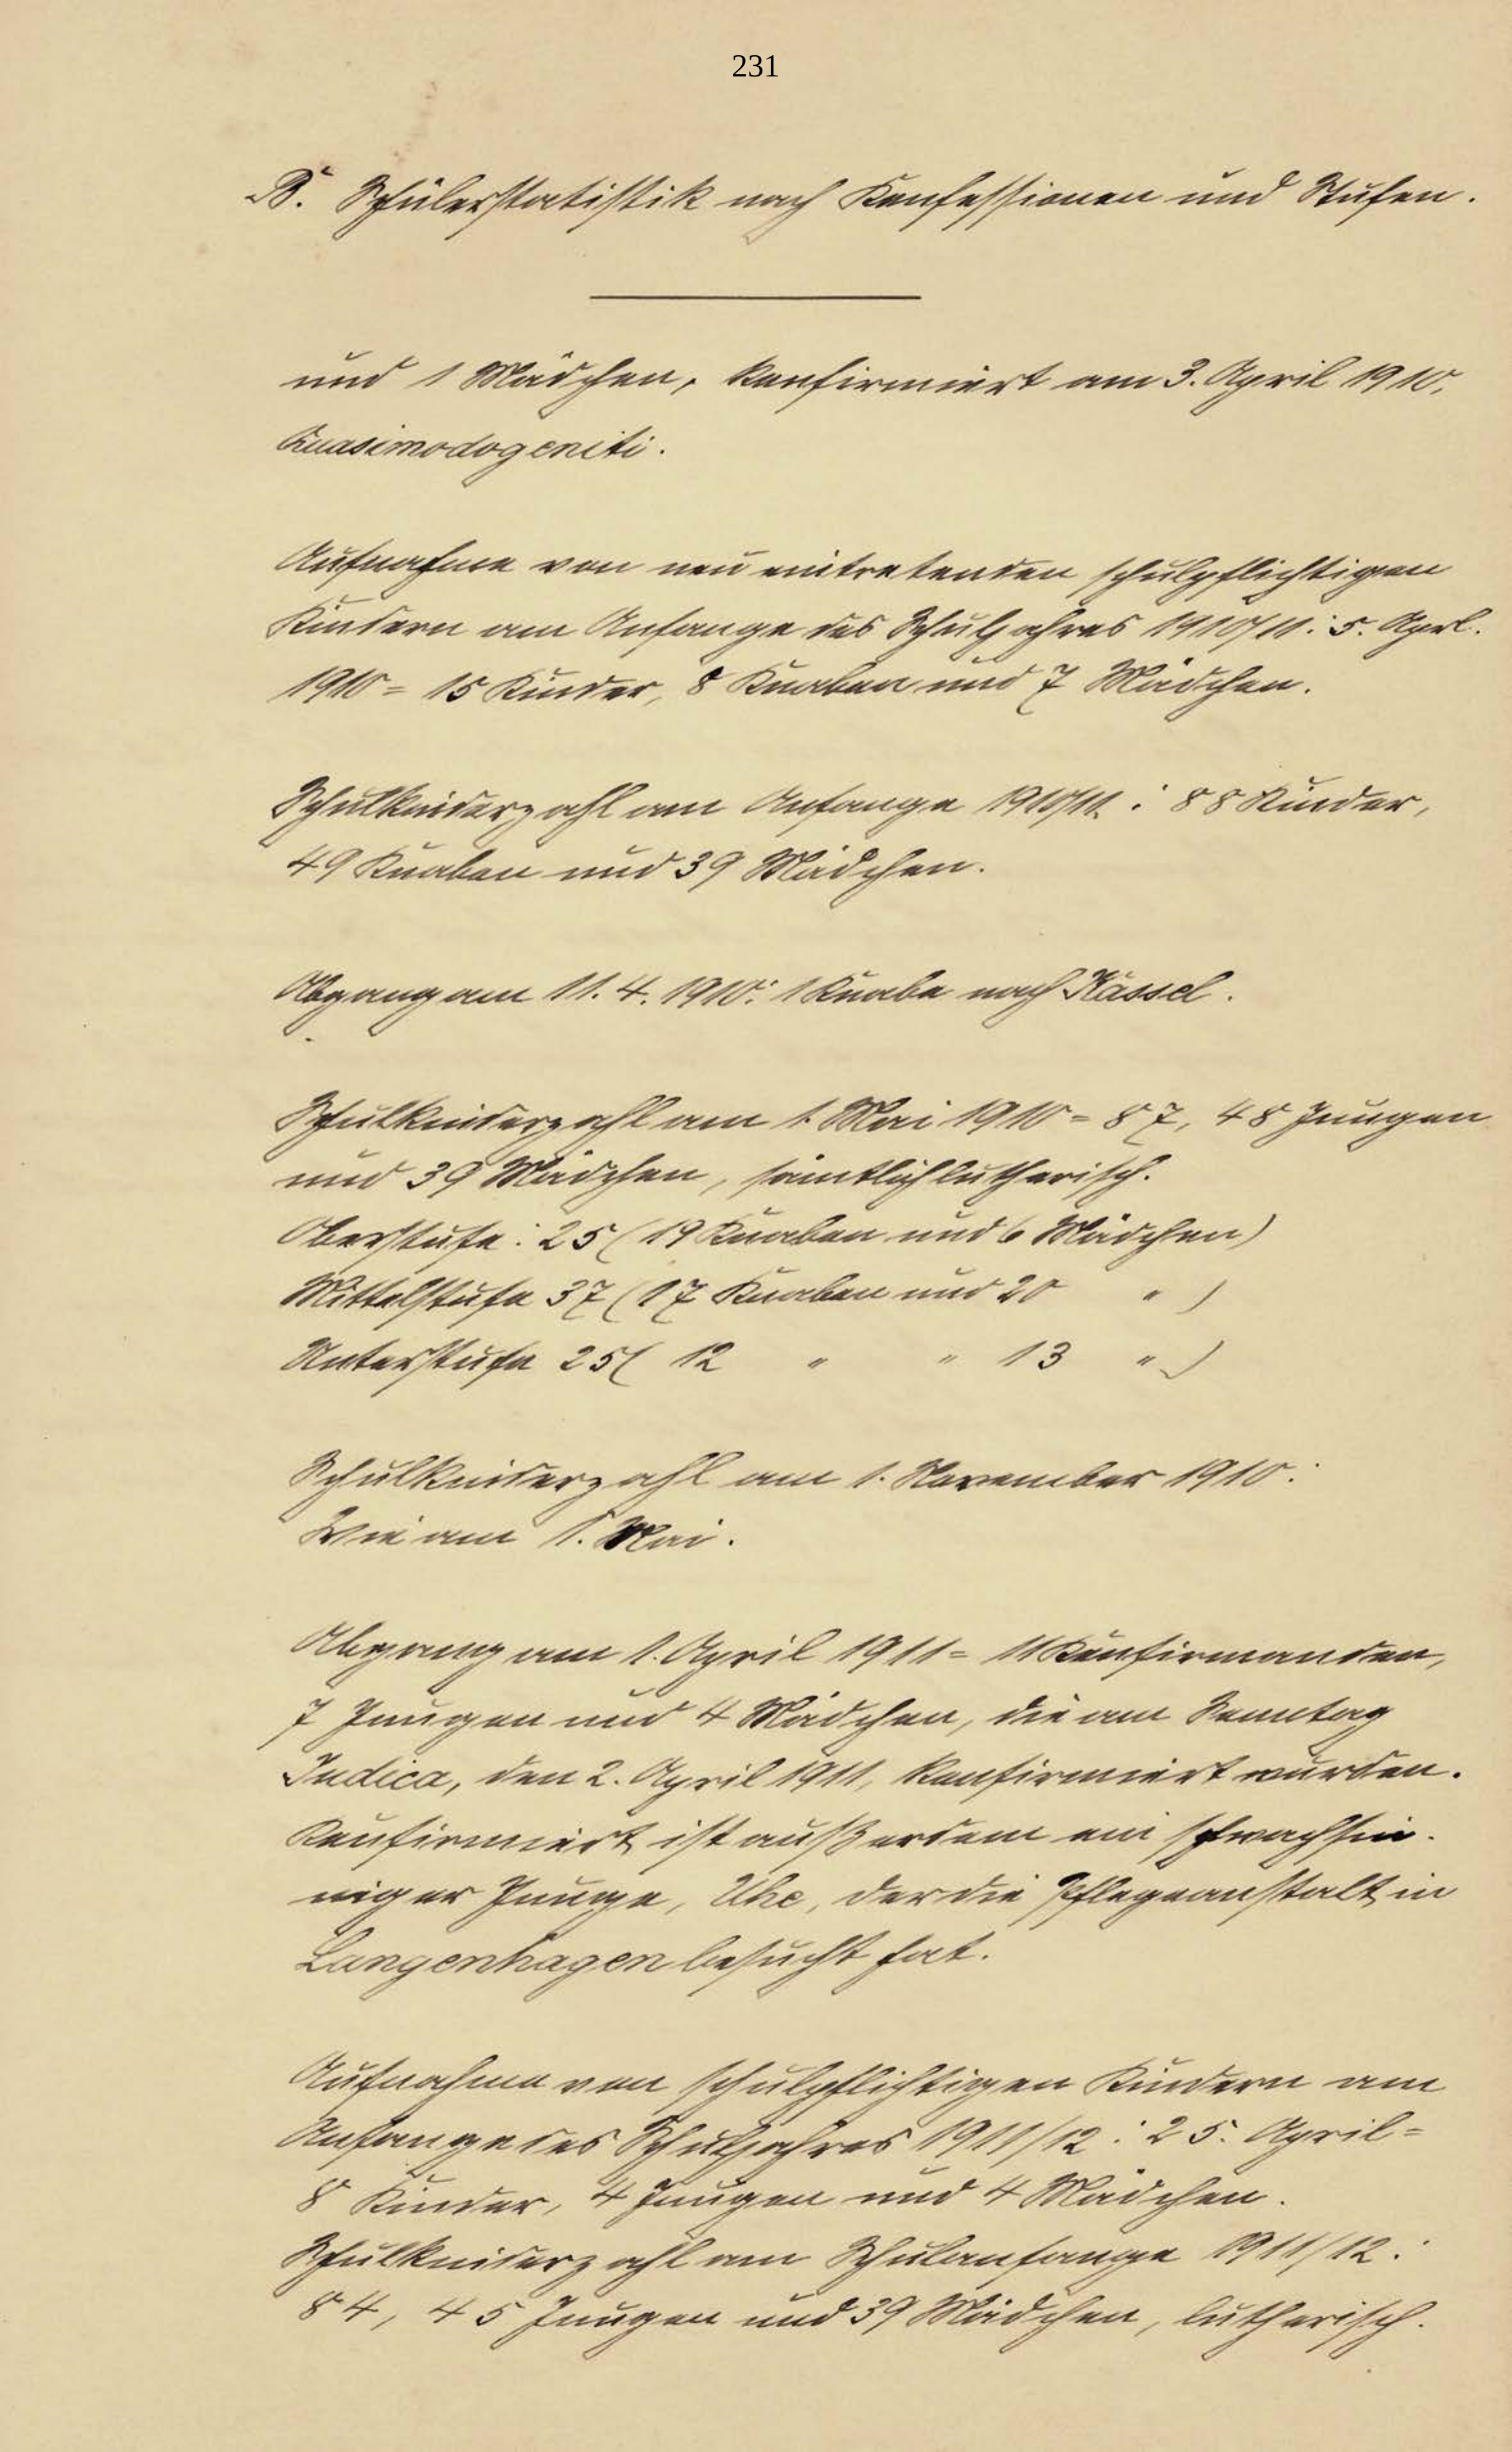 231
B. Schülerstatistik nach Konfessionen und Stufen.
und 1 Mädchen, konfirmiert am 3. April 1910,
Quasimodogeniti.
Aufnahme von neu eintretenden schulpflichtigen
Kindern am Anfange des Schuljahres 1910/11: 5. Aprl.
1910 = 15 Kinder, 8 Knaben und 7 Mädchen.
Schulkinderzahl am Anfange 1910/11: 88 Kinder,
49 Knaben und 39 Mädchen.
Abgang am 11. 4. 1910: 1 Knabe nach Kassel.
Schulkinderzahl am 1. Mai 1910 = 87, 48 Jungen
und 39 Mädchen, sämtlich lutherisch.
Oberstufe: 25 (19 Knaben und 6 Mädchen)
Mittelstufe 37 (17 Knaben und 20 " )
Unterstufe 25 ( 12 " " 13 " )
Schulkinderzahl am 1. November 1910:
Wie am 1. Mai.
Abgang am 1. April 1911 = 11 Konfirmanden,
7 Jungen und 4 Mädchen, die am Sonntag
Judica, den 2. April 1911, konfirmiert wurden.
Konfirmiert ist außerdem ein schwachsin-
niger Junge, Uhe, der die Pflegeanstalt in
Langenhagen besucht hat.
Aufnahme von schulpflichtigen Kindern am
Anfange des Schuljahres 1911/12: 25. April =
8 Kinder, 4 Jungen und 4 Mädchen.
Schulkinderzahl am Schulanfange 1911/12:
84, 45 Jungen und 39 Mädchen, lutherisch.